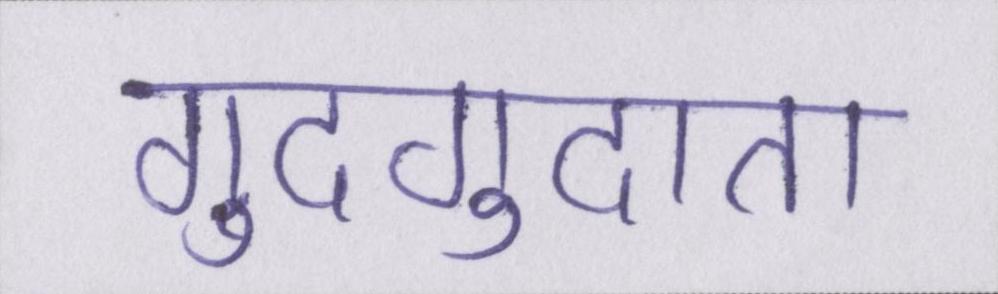 गुदगुदाता